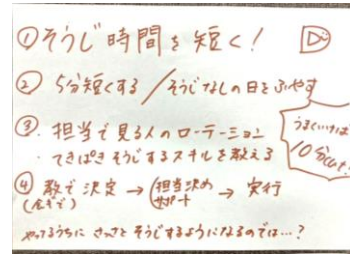 ①そうじ時間を短く!
② 5分短くする／そうじなしの日をふやす
③・担当で見る人のローテーション
・てきぱきそうじするスキルを教える
うまくいけば
10分cut!
④ 敢で決定 → 担当決め サポート → 実行
やってるうちに さっさと そうじするようになるのでは…?